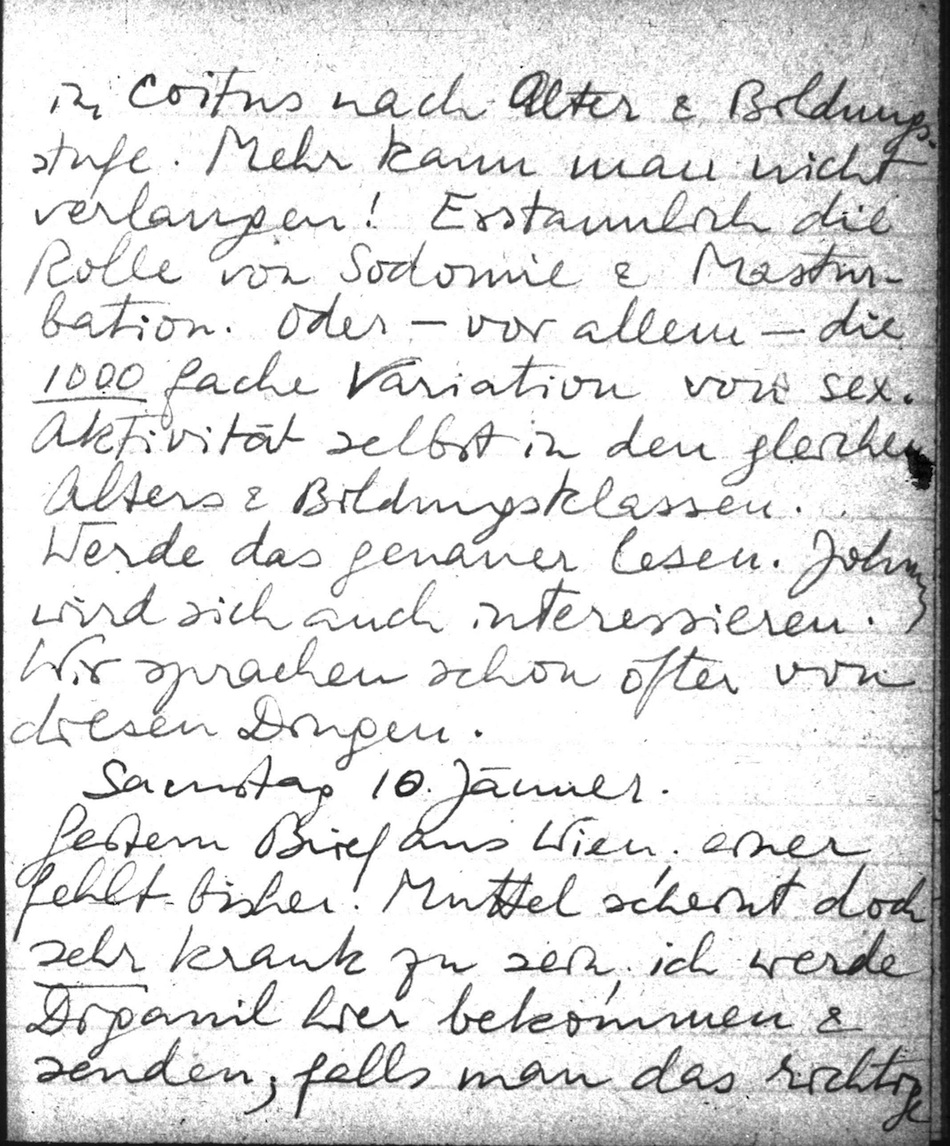 in Coitus nach Alter & Bildungs-
stufe. Mehr kann man nicht
verlangen! Erstaunlich die
Rolle von Sodomie & Mastur-
bation. Oder – vor allem – die
1000 fache Variation von sex.
Aktivität selbst in den gleichen
Alters & Bildungsklassen.
Werde das genauer lesen. Johnny
wird sich auch interessieren.
Wir sprachen schon öfter von
diesen Dingen.
Samstag 10. Jänner.
Gestern Brief aus Wien, einer
fehlt bisher. Muttel scheint doch
sehr krank zu sein, ich werde
hier bekommen &
senden, falls man das richtige